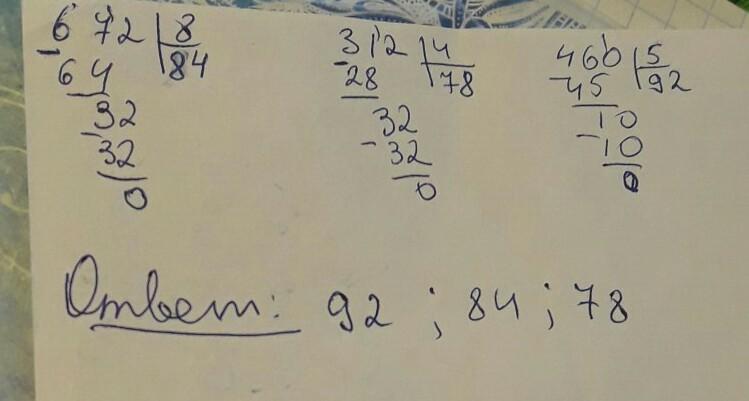 672 | 8
- 64 | 84
- 32
32
0
312 | 4
- 28 | 78
32
- 32
0
460 | 5
- 45 | 92
10
- 10
0
Ответ: 92 ; 84 ; 78